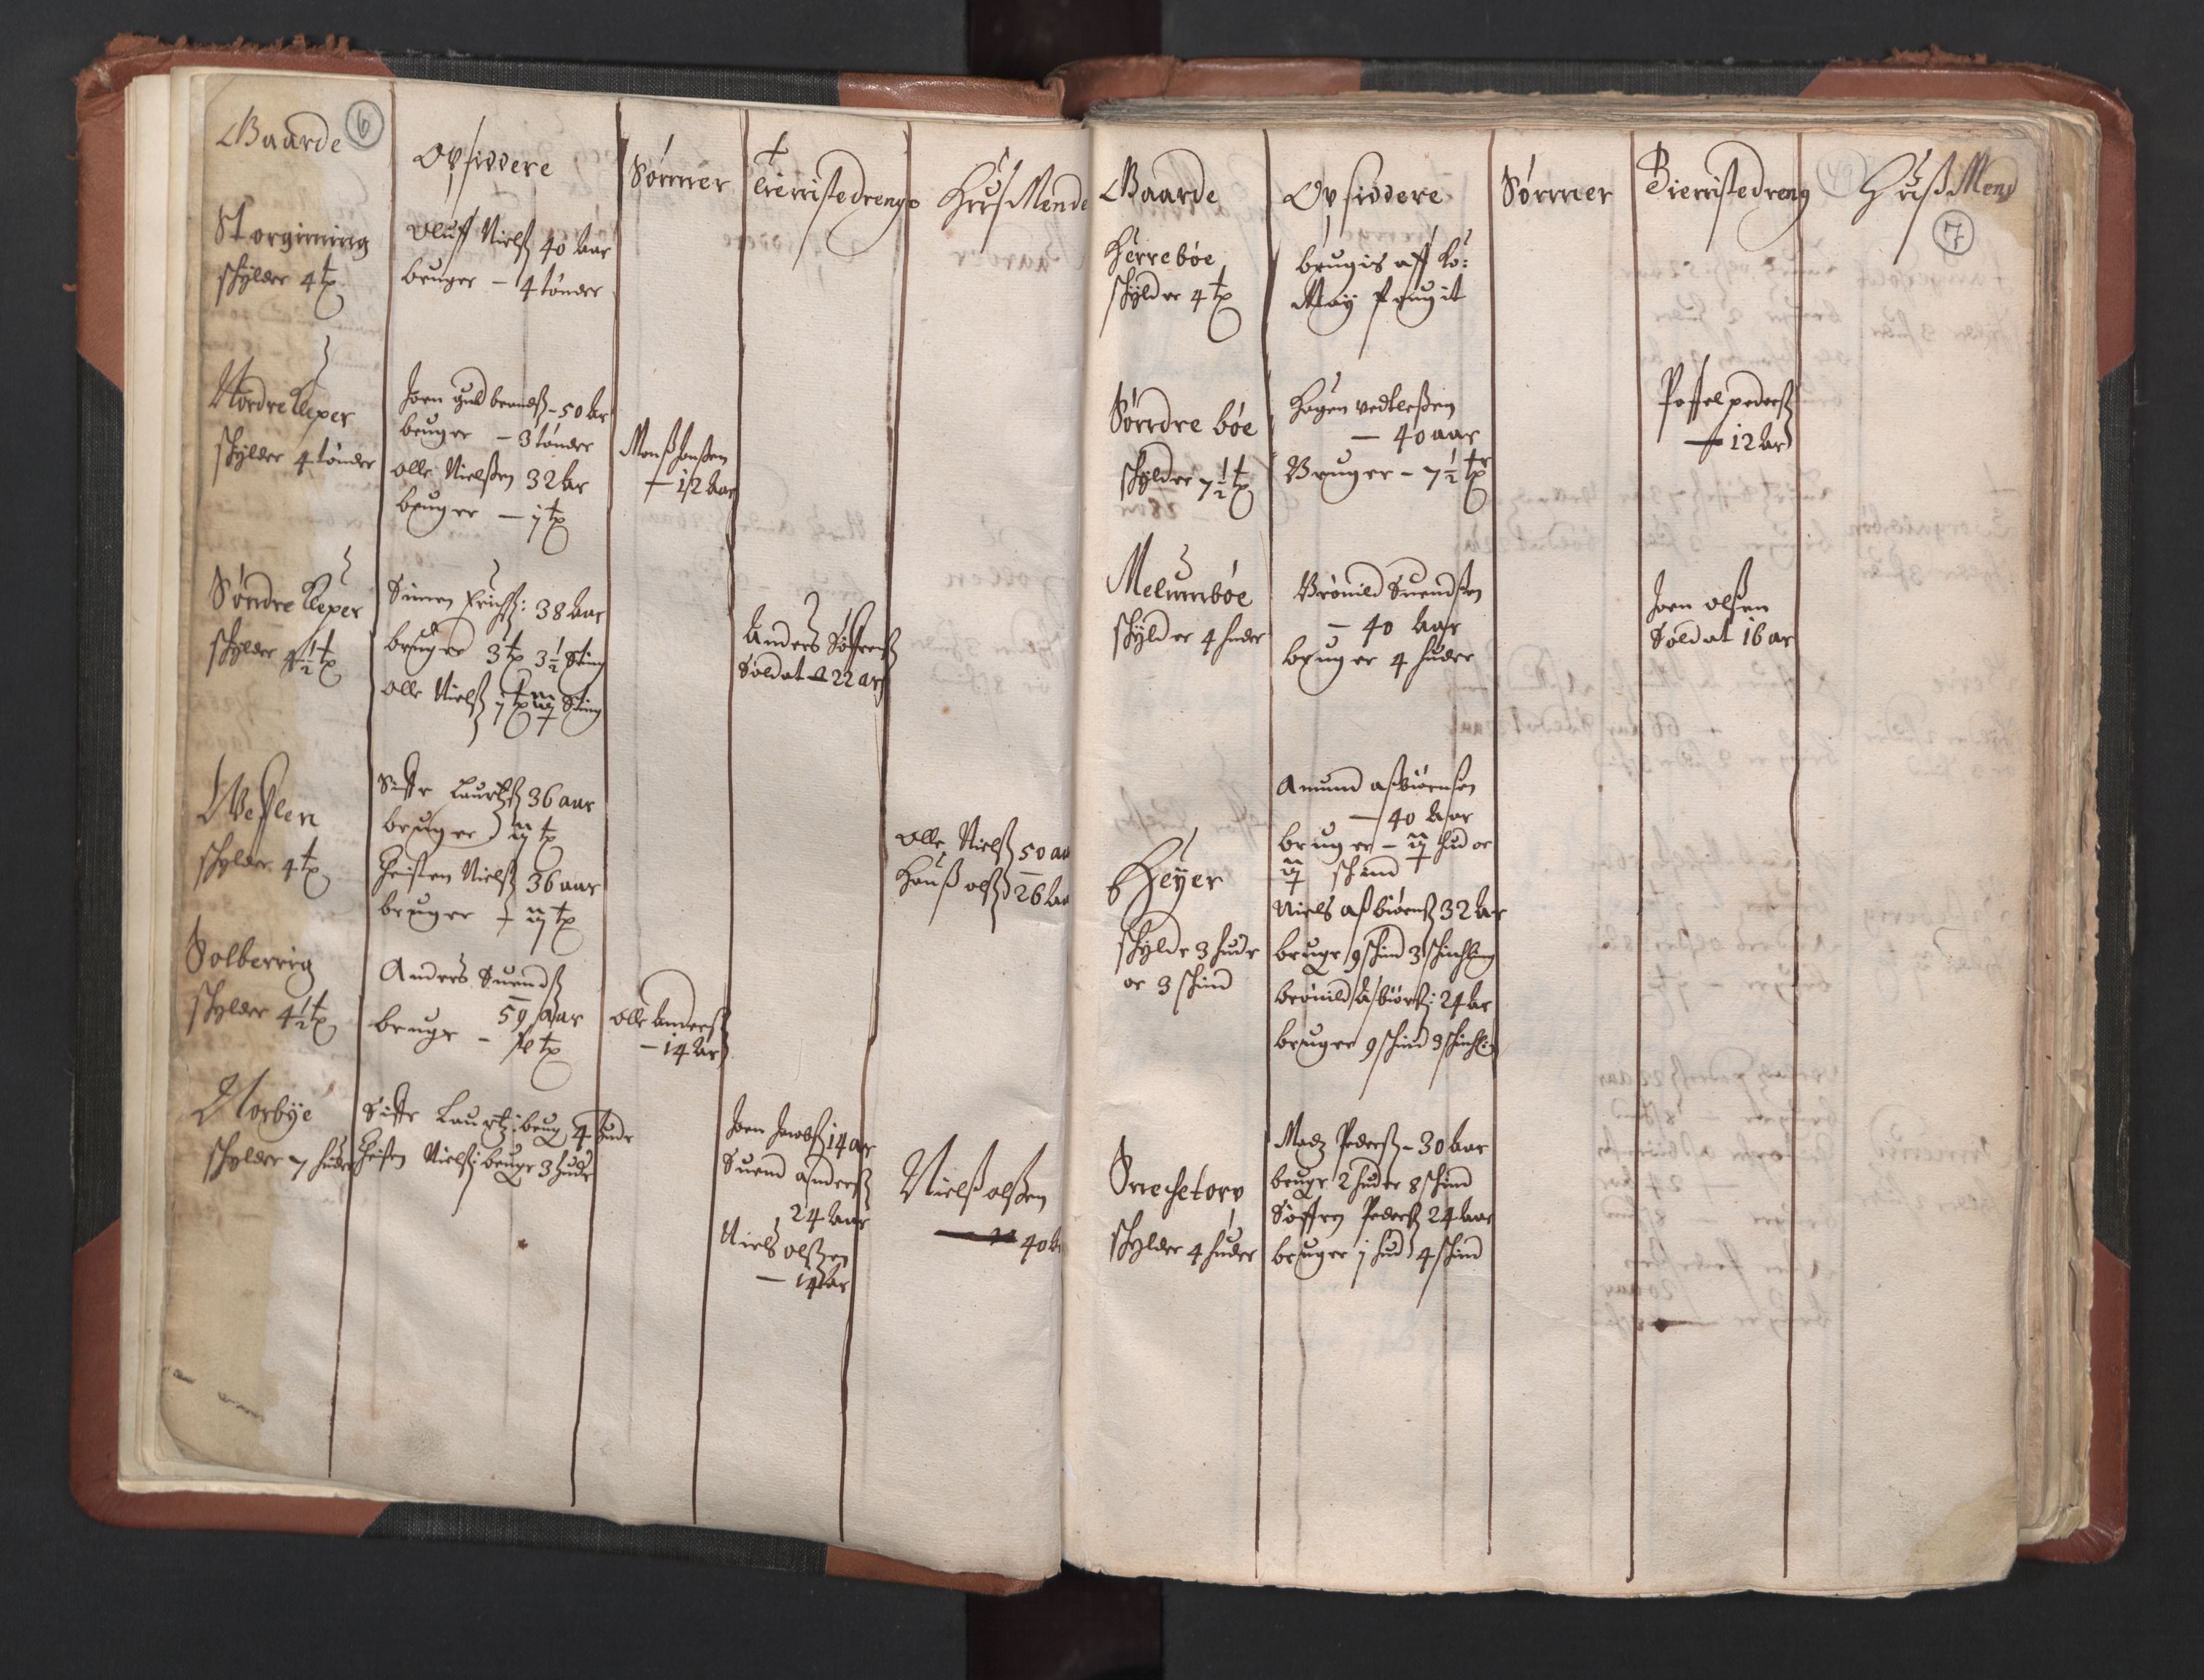 6
Gaarde
Opsiddere
Sønner
Tienistedrenge
HuusMende
Storgimming
schylder 4 tp
Oluff Nielß 40 aar
bruger - 4 tønder
Nordre Kleper
schylder 4 tønder
Joen guldbrandß - 50 ar
bruger - 3 tønder
Olle Nielßen 32 ar
bruger - j tp
Monß Joenßen
- 12 aar
Søndre Kleper
schylder 4 1/2 tp
Simen Erichß: 38 aar
bruger 3 tp 3 1/2 Sting
Olle Nielß j tp
Anders Søffrenß
Soldat - 22 ar
Weslen
schylder 4 tp
Siffr Laurtzß 36 aar
bruger ij tp
Christen Nielß 36 aar
bruger - ij tp
Olle Nielß 50 aa
Hanß olß 26 aa
Solberrig
schylder 4 1/2 tp
Anders Suendß
59 aar
bruger - tp
Olle Anderß
- 14 ar
Norbÿe
schylder 7 huder
Siffr Laurtz: brug 4 hude
Christen Nielß: bruger 3 hude
Joen Jacobß 14 ar
Suend anderß
24 aar
Niels olßen
- 14 ar
Nielß olßen
40 a
7
Gaarde
Opsiddere
Sønner
Tienistedreng
HuußMend
Herrebøe
schylder 4 tp
brugis aff Ko:
May fougit
Sørrdre bøe
schylder 7 1/2 tp
Hagen vedleßen
- 40 aar
Bruger - 7 1/2 tp
Poffel pederß
- 12 ar
Melumbøe
schylder 4 huder
Brønild Suendßen
- 40 aar
bruger 4 huder
Joen olßen
Soldat 16 ar
Heyer
schylde 3 hude
oc 3 schind
Amund aßbiørnsen
- 40 aar
bruger - ij hud oc
ij schind
Niels aßbiørnß 32 ar
bruger 9 schind 3 schichling
brønild Aßbiørnß: 24 ar
bruger 9 schind 3 schichling
Snechetorp
schylder 4 huder
Madz Pederß - 30 aar
bruger 2 huder 8 schind
Søffren Pederß 24 aar
bruger j hud 4 schind